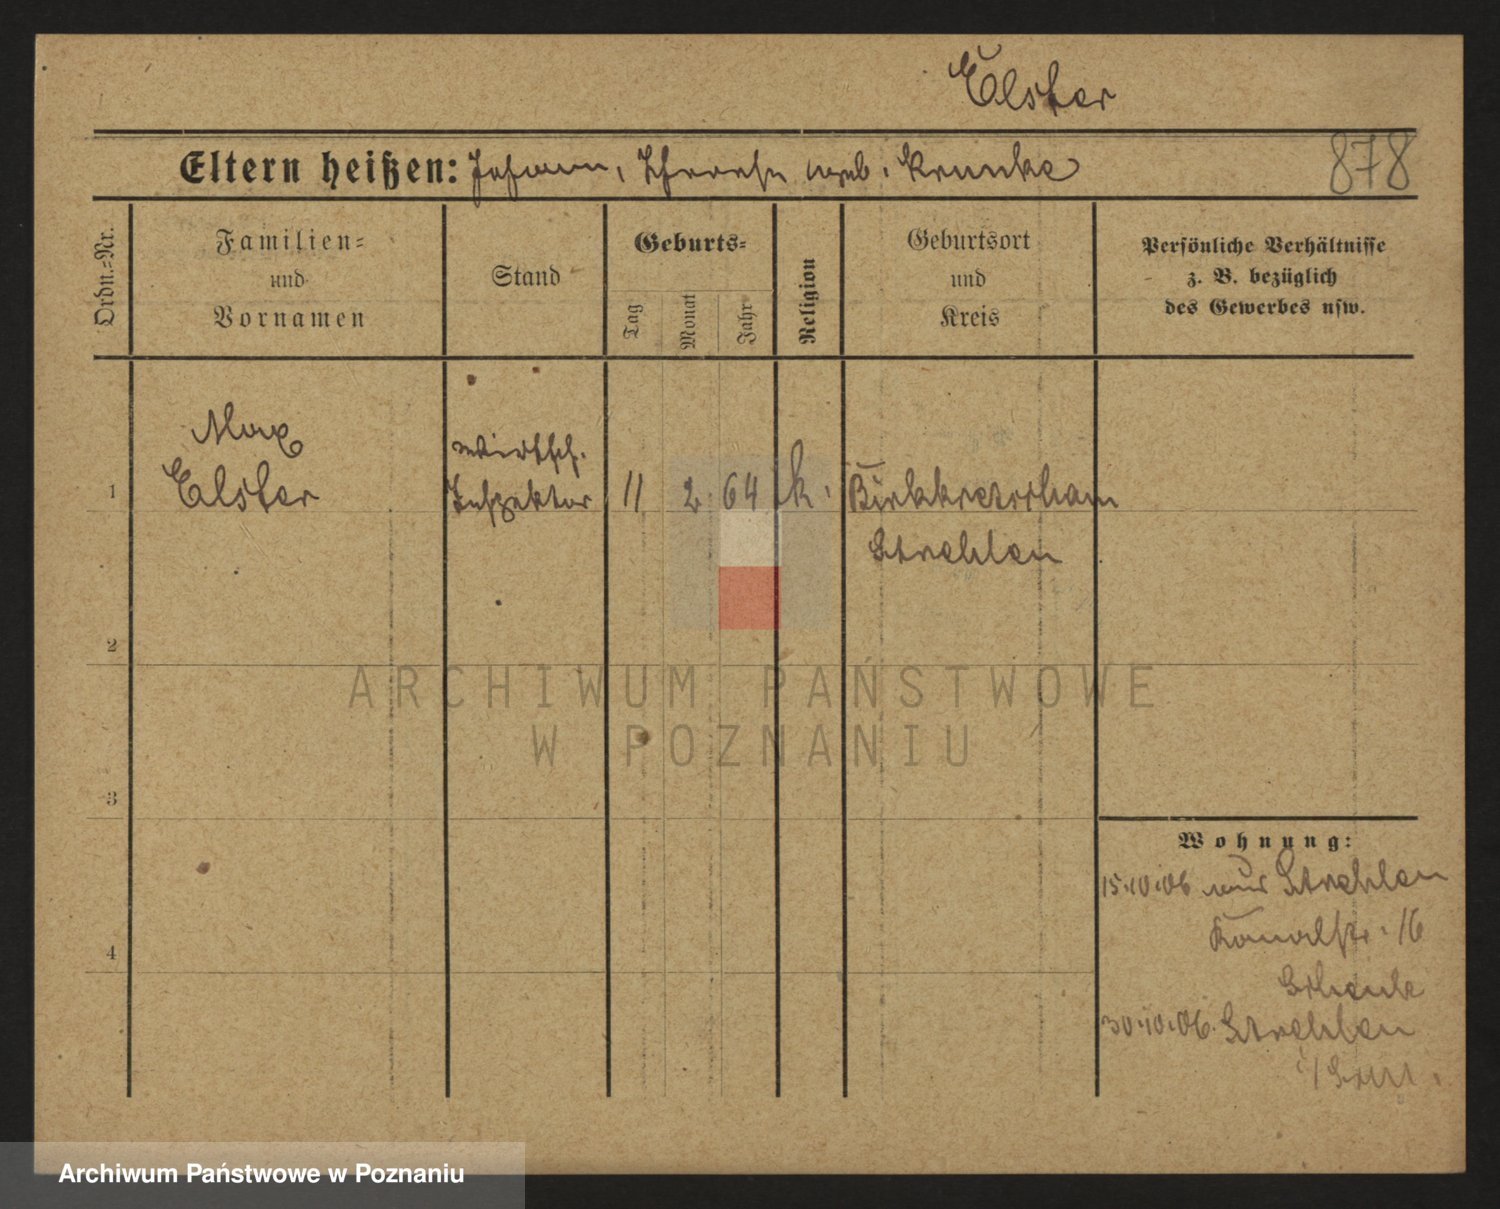 Elster
Eltern heißen: Johann, Therese geb. Krunke
878
Ordn.-Nr.
Familien-
und
Vornamen
Stand
Geburts-
Tag
Monat
Jahr
Religion
Geburtsort
und
Kreis
Persönliche Verhältnisse
z. B. bezüglich
des Gewerbes usw.
Max
Elster
wirtsch.
Inspektor
1
11 2. 64 k.
Strehlen
2
3
4
ARCHIWUM PAŃSTWOWE
W POZNANIU
Wohnung:
15.10.06 Strehlen
16
30.10.06. Strehlen
Archiwum Państwowe w Poznaniu